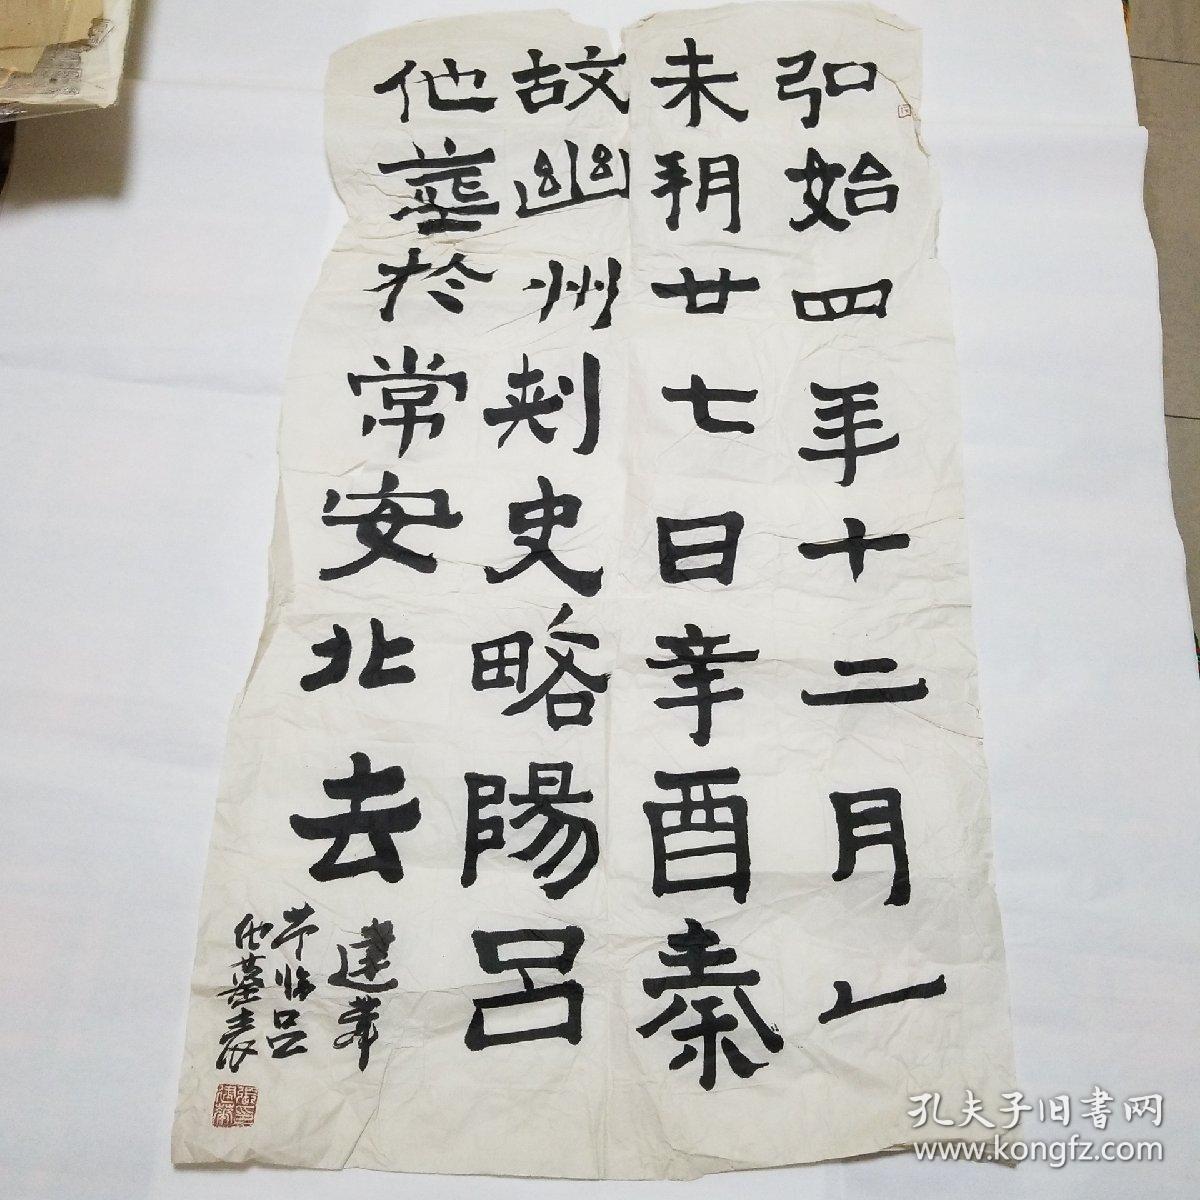 弘始四年十二月乙
未朔廿七日辛酉秦
故幽州刺史略陽呂
他葬於常安北去
達華
节临吕
他墓表
孔夫子旧書网
www.kongfz.com